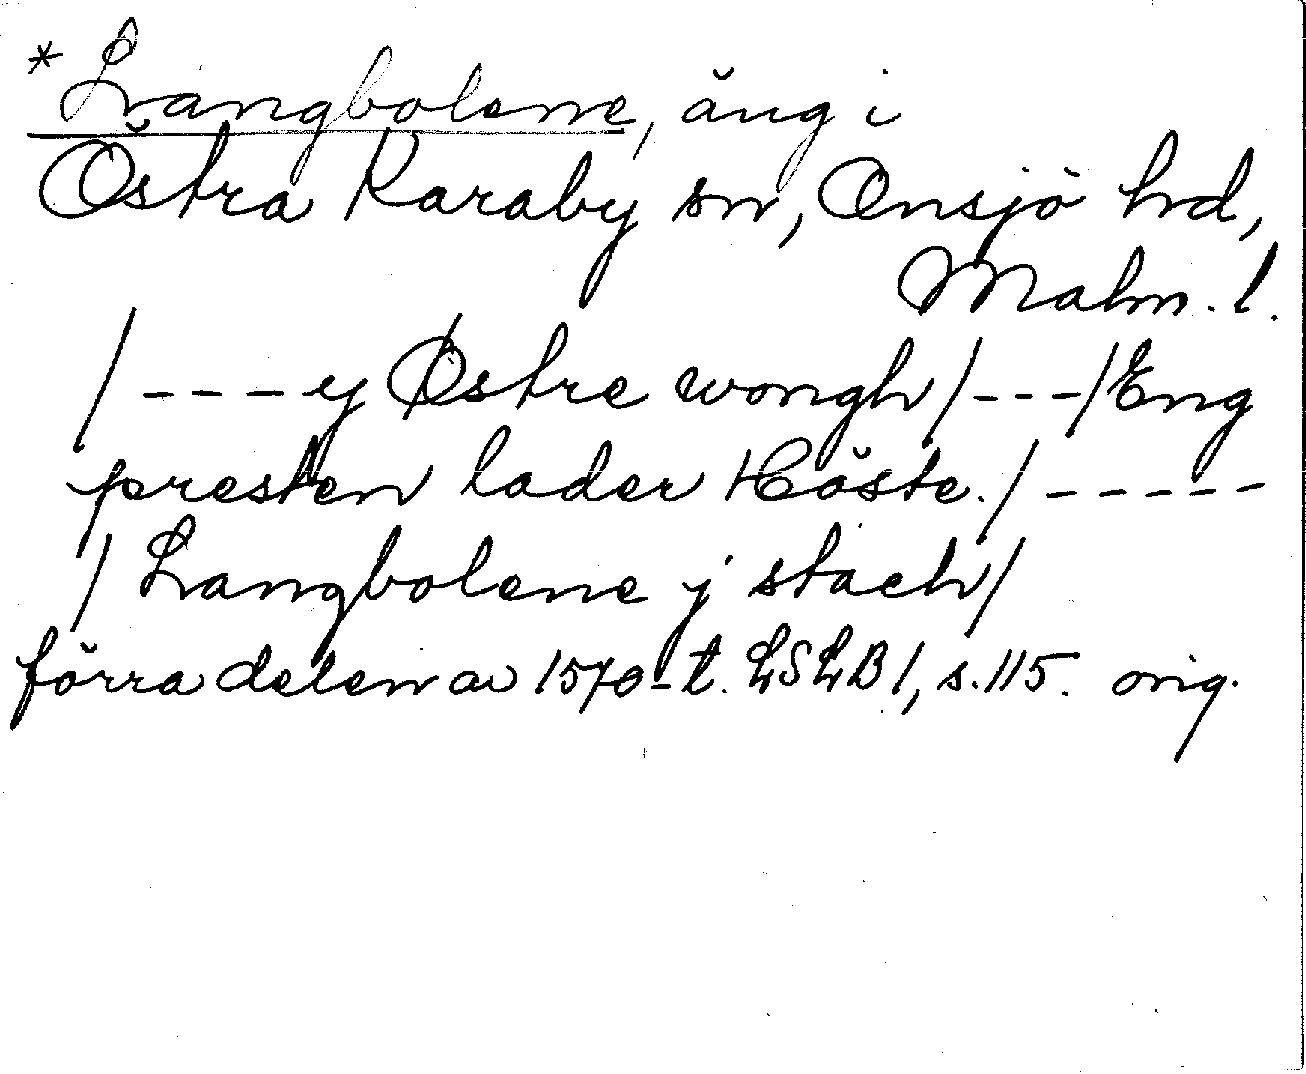 *Langbolene, äng i
Östra Karaby sn, Onsjö hd,
Malm. l.
/ - - - y Østre wongh / - - - / Eng
presten lader Höste. / - - - - -
/ Langbolene j stach /
förra delen av 1570-t. LSLB I, s. 115. orig.